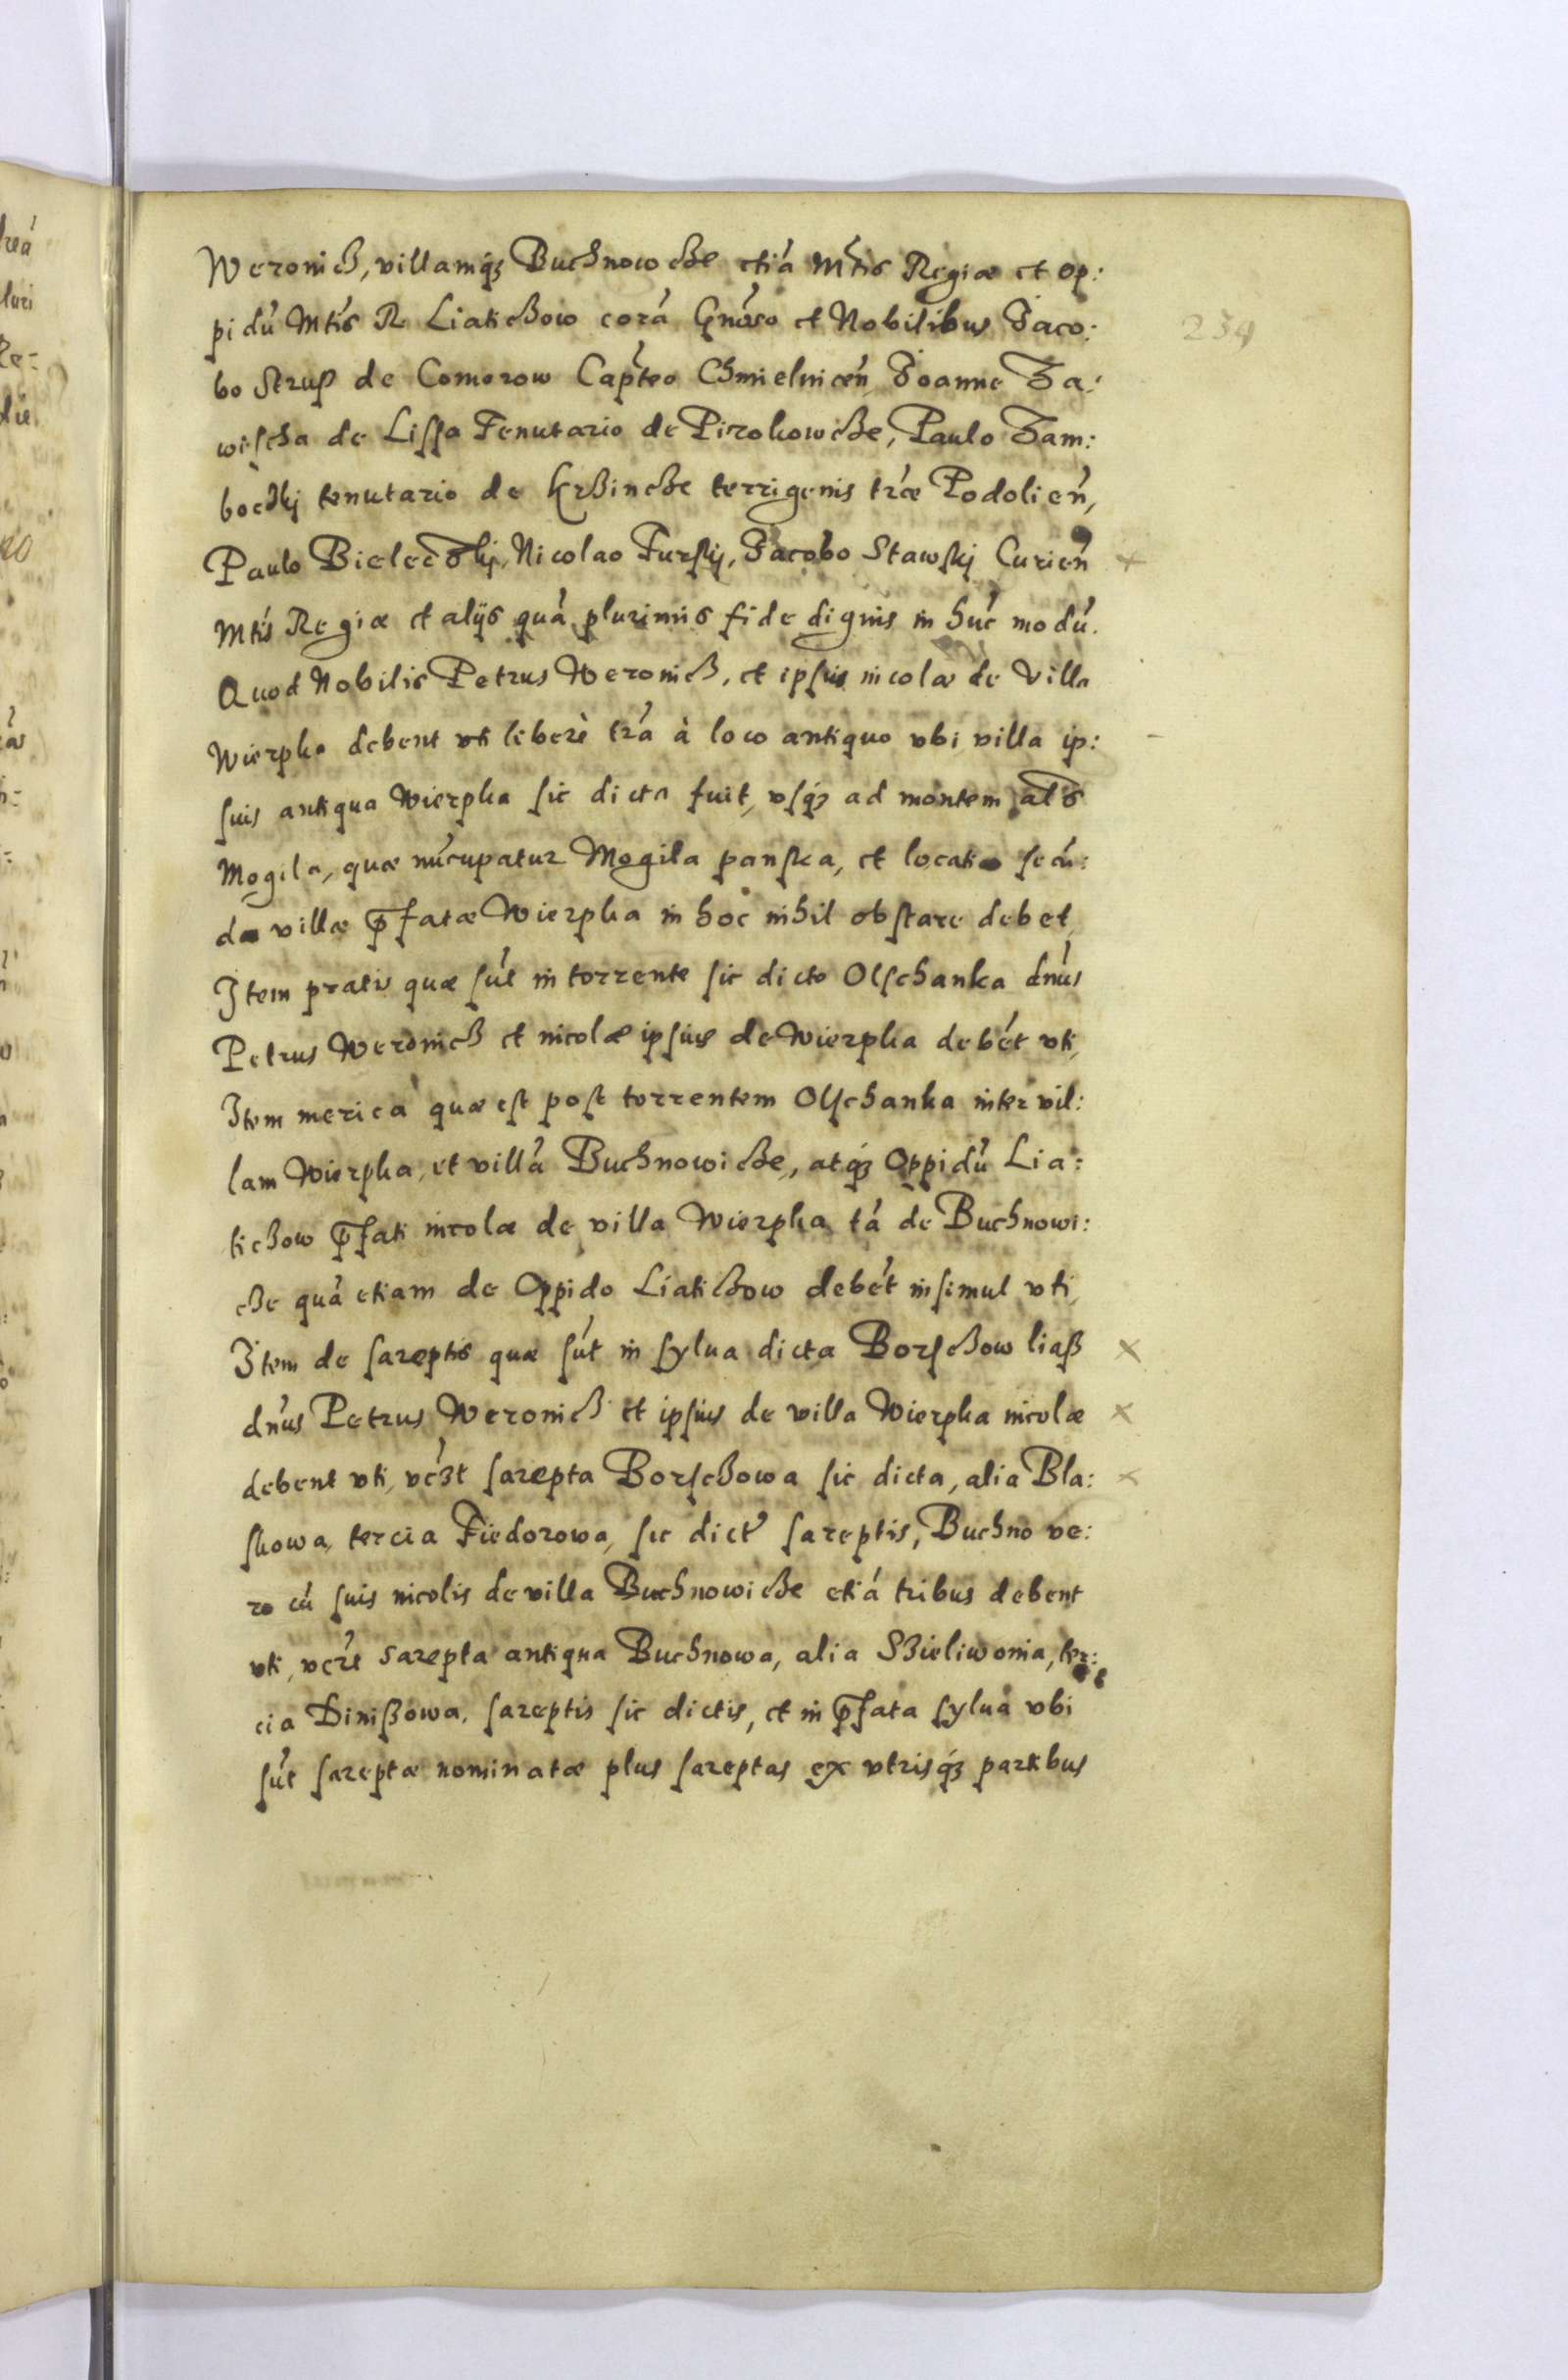 Weronicz, villamq́ʒ Buchnowcze etiá Mtis Regiæ et op:
pidú Mtis R Liatichow corá Gnóso et Nobilibus Jaco:
bo Strusz de Comorow Capteo Chmielnicen̄, Joanne Za:
wischa de Lissa Tenutario de Pirohowcze, Paulo Zam:
boczkj tenutario de Krzincze terrigenis tr̃æ Podolien̄,
Paulo Bieleczkj, Nicolao Turskj, Jacobo Stawskj Curien̄
Mtis Regiæ et alijs quá plurimis fide dignis in húc modú.
Quod Nobilis Petrus Weronicz, et ipsius incolæ de Villa
Wierpka debent uti liberè tr̃á à loco antiquo vbi villa ip:
suis antiqua Wierpka sic dicta fuit, vsq́ʒ ad montem als
Mogila, quæ núcupatur Mogila panska, et locatio secú:
da villæ p̃fatæ Wierpka in hoc nihil obstare debet,
Item pratis quæ sút in torrente sic dicto Olschanka dnús
Petrus Weronicz et incolæ ipsius de Wierpka debét vti,
Item merica quæ est post torrentem Olschanka inter vil:
lam Wierpka, et villá Buchnowicze, atq́ʒ Oppidú Lia:
tichow p̃fati incolæ de villa Wierpka tá de Buchnowi:
cze quá etiam de Oppido Liatichow debét insimul vti,
Item de sareptis quæ sút in sylua dicta Borschow liasz
dnús Petrus Weronicz et ipsius de villa Wierpka incolæ
debent vti, vcʒt sarepta Borschowa sic dicta, alia Bla:
skowa, tercia Fiedorowa, sic dict' sareptis, Buchno ve:
ro cú suis incolis de villa Buchnowicze etiá tribus debent
vti, vcʒt sarepta antiqua Buchnowa, alia Szieliwonia, ter:
cia Diniszowa, sareptis sic dictis, et in p̃fata sylua vbi
sút sareptæ nominatæ plus sareptas ex vtrisq́ʒ partibus
234